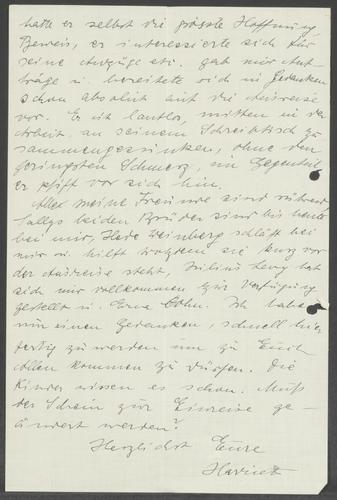 hatte er selbst die grösste Hoffnung,
Beweis, er interessierte sich für
seine Anzüge etc. gab mir Auf-
träge u. bereitete sich in Gedanken
schon absolut auf die Ausreise
vor. Er ist lautlos, mitten in der
Arbeit, an seinem Schreibtisch zu
sammengesunken, ohne den
geringsten Schmerz, im Gegenteil
er pfiff vor sich hin.
Alle meine Freunde sind rührend
beiden Brüder sind bis heute
bei mir, Hede Weinberg schläft bei
mir u. hilft trotzdem sie kurz vor
der Ausreise steht, Julius Levy hat
sich mir vollkommen zur Verfügung
gestellt u. Erna Cohn. Ich habe
nur einen Gedanken, schnell hier
fertig zu werden um zu Euch
Allen kommen zu dürfen. Die
Kinder wissen es schon. Muß
der Schein zur Einreise ge-
ändert werden?
Herzlichst Eure
Harriet